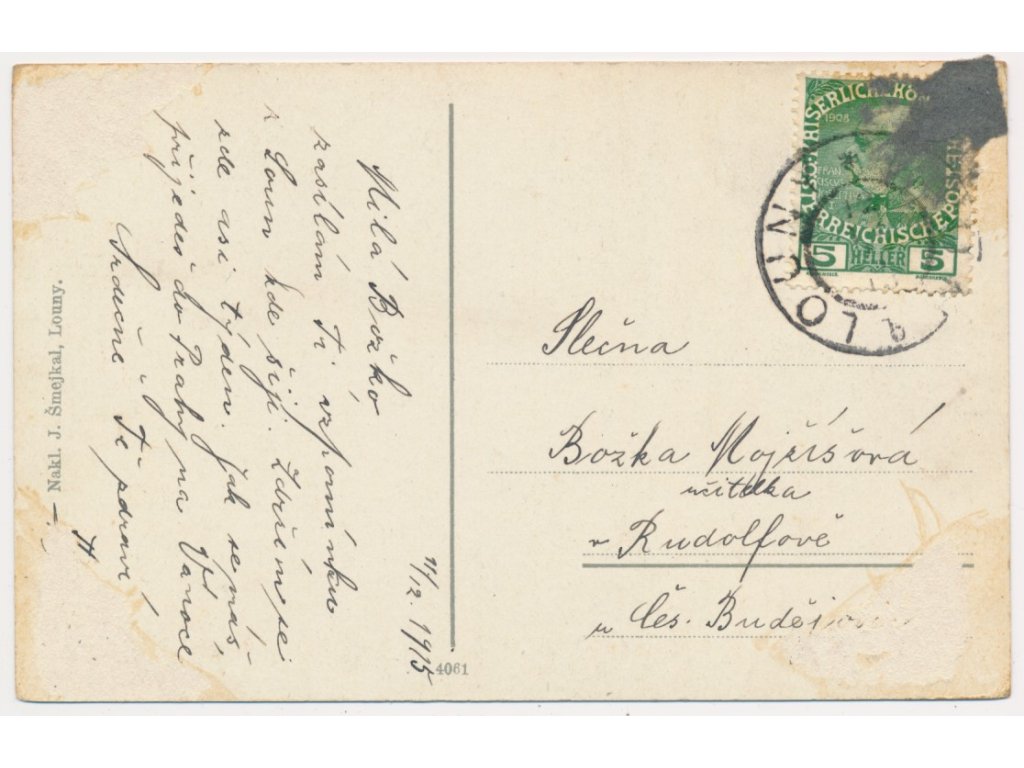 Milá Božko
zasílám Ti vzpomínku
z Loun kde šiji. Zdržím se
zde asi týden. Jak se máš,
přijedeš do Prahy na Vánoce
Srdečně Tě zdraví
H
11/12. 1915
Nakl. J. Šmejkal, Louny.
4061
1908
5 HELLER 5
LOUNY
Slečna
Božka Mojžíšová
učitelka
v Rudolfově
u Čes. Budějovic